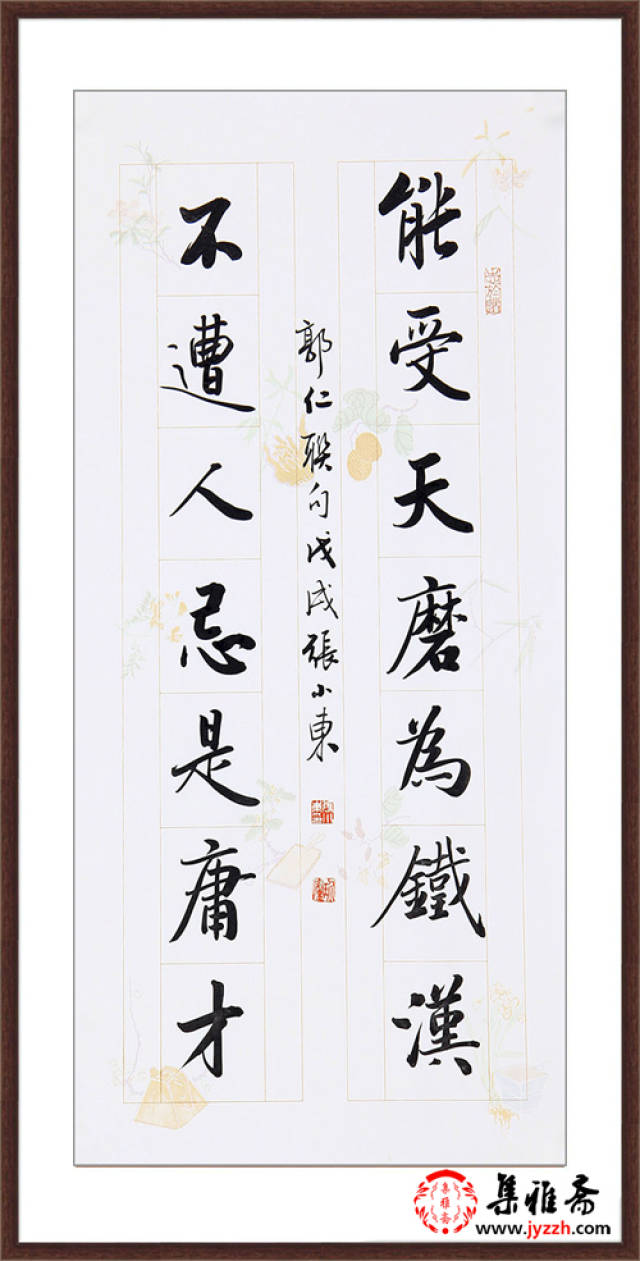 能受天磨為鐵漢
不遭人忌是庸才
郭仁聯句戊戌張小東
集雅斋
集雅斋
www.jyzzh.com